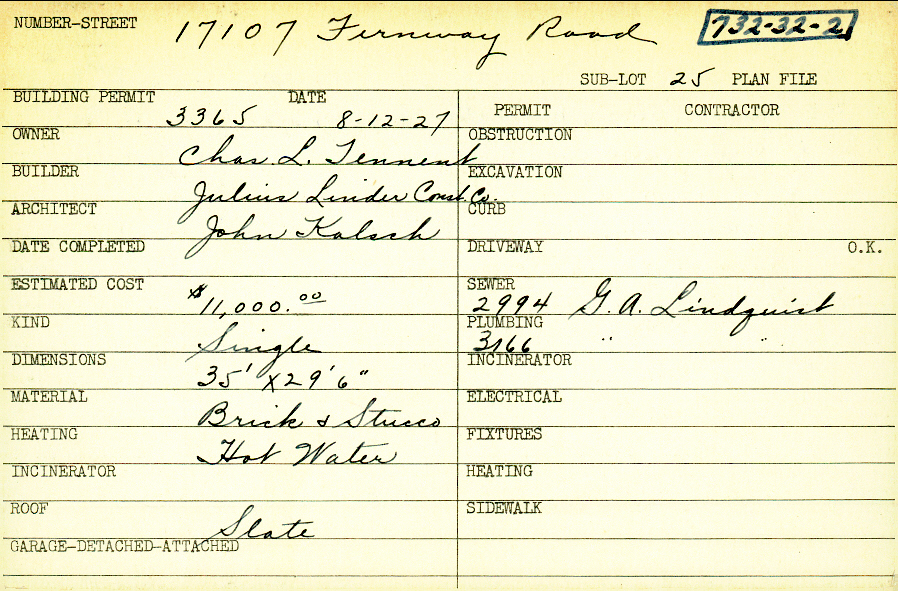 NUMBER-STREET 17107 Fernway Road 732-32-2
SUB-LOT 25 PLAN FILE
BUILDING PERMIT 3365 DATE 8-12-27
PERMIT CONTRACTOR
OWNER Chas. L. Tennent
OBSTRUCTION
BUILDER Julius Linder Const. Co.
EXCAVATION
ARCHITECT John Kalsch
CURB
DATE COMPLETED
DRIVEWAY O.K.
ESTIMATED COST $11,000.00
SEWER 2994 G. A. Lindquist
KIND Single
PLUMBING 3166 " "
DIMENSIONS 35' x 29'6"
INCINERATOR
MATERIAL Brick & Stucco
ELECTRICAL
HEATING Hot Water
FIXTURES
INCINERATOR
HEATING
ROOF Slate
SIDEWALK
GARAGE-DETACHED-ATTACHED